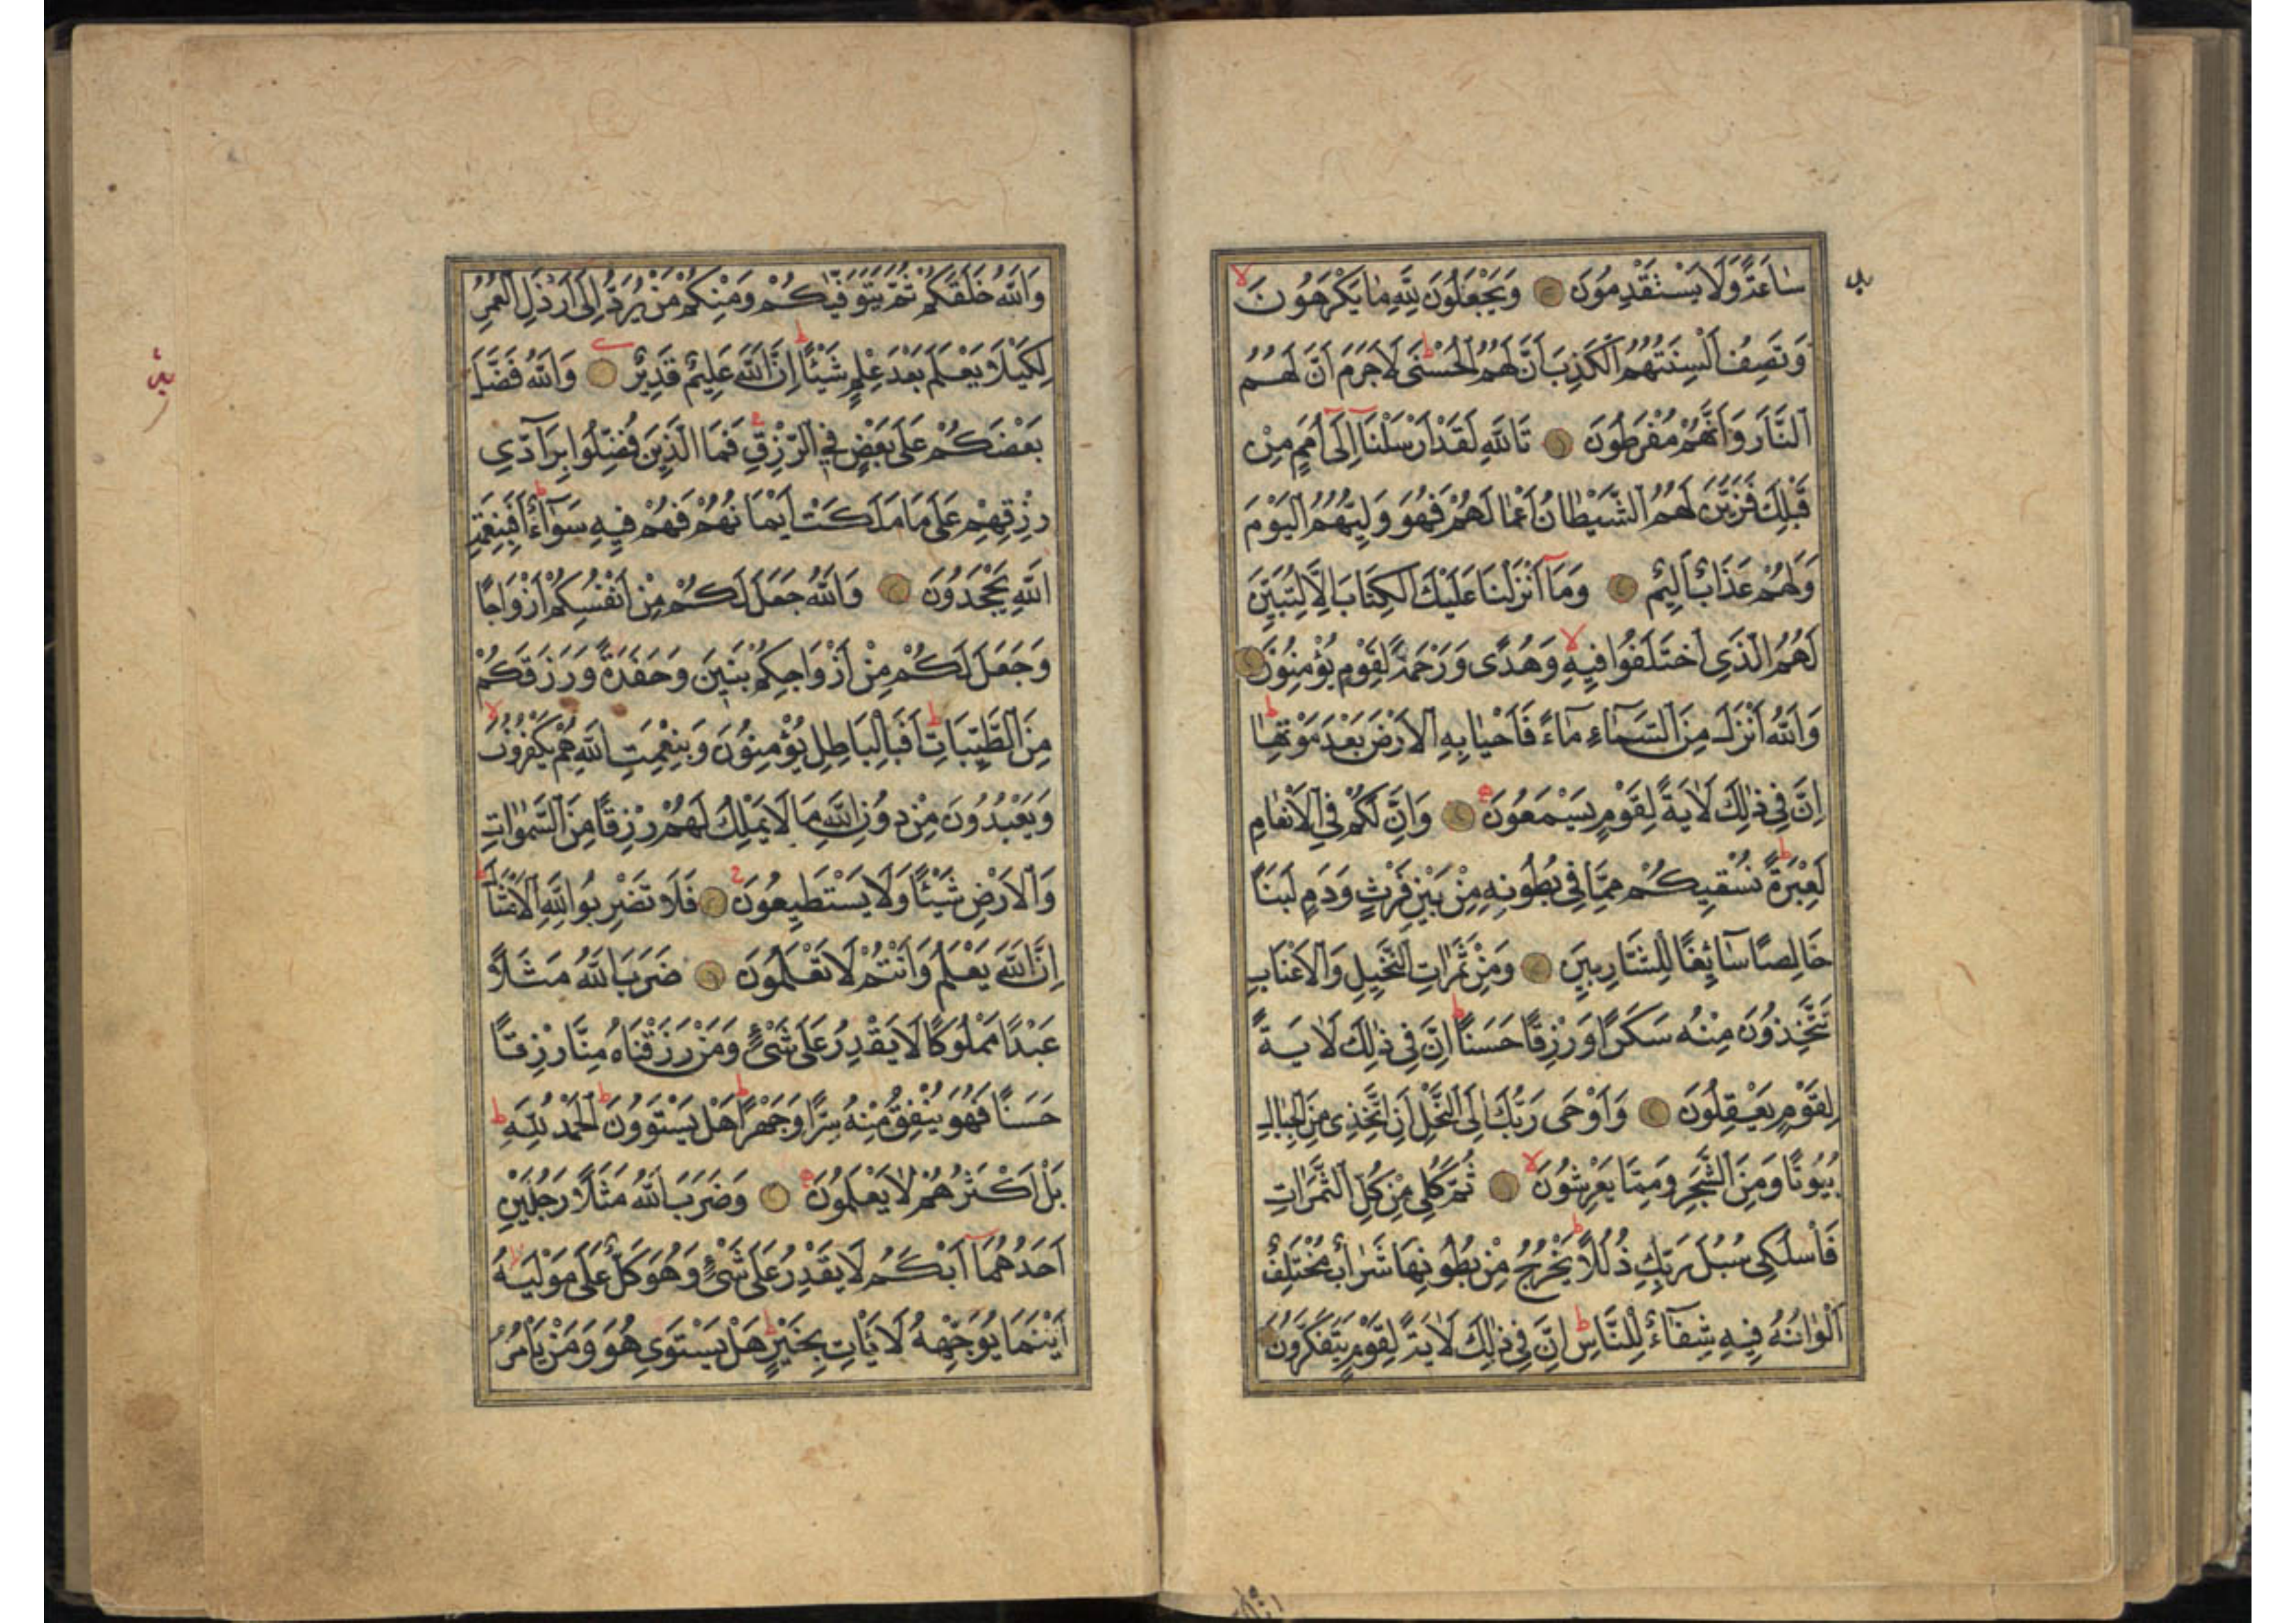 سَاعَةً وَلَا يَسْتَقْدِمُونَ وَيَجْعَلُونَ لِلّٰهِ مَا يَكْرَهُونَ
وَتَصِفُ اَلْسِنَتُهُمُ الْكَذِبَ اَنَّ لَهُمُ الْحُسْنٰى لَا جَرَمَ اَنَّ لَهُمُ
النَّارَ وَاَنَّهُمْ مُفْرَطُونَ تَاللّٰهِ لَقَدْ اَرْسَلْنَٓا اِلٰٓى اُمَمٍ مِنْ
قَبْلِكَ فَزَيَّنَ لَهُمُ الشَّيْطَانُ اَعْمَالَهُمْ فَهُوَ وَلِيُّهُمُ الْيَوْمَ
وَلَهُمْ عَذَابٌ اَلِيمٌ وَمَٓا اَنْزَلْنَا عَلَيْكَ الْكِتَابَ اِلَّا لِتُبَيِّنَ
لَهُمُ الَّذِى اخْتَلَفُوا فِيهِ وَهُدًى وَرَحْمَةً لِقَوْمٍ يُؤْمِنُونَ
وَاللّٰهُ اَنْزَلَ مِنَ السَّمَٓاءِ مَٓاءً فَاَحْيَا بِهِ الْاَرْضَ بَعْدَ مَوْتِهَا
اِنَّ فِى ذٰلِكَ لَاٰيَةً لِقَوْمٍ يَسْمَعُونَ وَاِنَّ لَكُمْ فِى الْاَنْعَامِ
لَعِبْرَةً نُسْقِيكُمْ مِمَّا فِى بُطُونِهِ مِنْ بَيْنِ فَرْثٍ وَدَمٍ لَبَنًا
خَالِصًا سَٓائِغًا لِلشَّارِبِينَ وَمِنْ ثَمَرَاتِ النَّخِيلِ وَالْاَعْنَابِ
تَتَّخِذُونَ مِنْهُ سَكَرًا وَرِزْقًا حَسَنًا اِنَّ فِى ذٰلِكَ لَاٰيَةً
لِقَوْمٍ يَعْقِلُونَ وَاَوْحٰى رَبُّكَ اِلَى النَّحْلِ اَنِ اتَّخِذِى مِنَ الْجِبَالِ
بُيُوتًا وَمِنَ الشَّجَرِ وَمِمَّا يَعْرِشُونَ ثُمَّ كُلِى مِنْ كُلِّ الثَّمَرَاتِ
فَاسْلُكِى سُبُلَ رَبِّكِ ذُلُلًا يَخْرُجُ مِنْ بُطُونِهَا شَرَابٌ مُخْتَلِفٌ
اَلْوَانُهُ فِيهِ شِفَٓاءٌ لِلنَّاسِ اِنَّ فِى ذٰلِكَ لَاٰيَةً لِقَوْمٍ يَتَفَكَّرُونَ
وَاللّٰهُ خَلَقَكُمْ ثُمَّ يَتَوَفّٰيكُمْ وَمِنْكُمْ مَنْ يُرَدُّ اِلٰٓى اَرْذَلِ الْعُمُرِ
لِكَيْلَا يَعْلَمَ بَعْدَ عِلْمٍ شَيْئًا اِنَّ اللّٰهَ عَلِيمٌ قَدِيرٌ وَاللّٰهُ فَضَّلَ
بَعْضَكُمْ عَلٰى بَعْضٍ فِى الرِّزْقِ فَمَا الَّذِينَ فُضِّلُوا بِرَٓادِّى
رِزْقِهِمْ عَلٰى مَا مَلَكَتْ اَيْمَانُهُمْ فَهُمْ فِيهِ سَوَٓاءٌ اَفَبِنِعْمَةِ
اللّٰهِ يَجْحَدُونَ وَاللّٰهُ جَعَلَ لَكُمْ مِنْ اَنْفُسِكُمْ اَزْوَاجًا
وَجَعَلَ لَكُمْ مِنْ اَزْوَاجِكُمْ بَنِينَ وَحَفَدَةً وَرَزَقَكُمْ
مِنَ الطَّيِّبَاتِ اَفَبِالْبَاطِلِ يُؤْمِنُونَ وَبِنِعْمَتِ اللّٰهِ هُمْ يَكْفُرُونَ
وَيَعْبُدُونَ مِنْ دُونِ اللّٰهِ مَا لَا يَمْلِكُ لَهُمْ رِزْقًا مِنَ السَّمٰوَاتِ
وَالْاَرْضِ شَيْئًا وَلَا يَسْتَطِيعُونَ فَلَا تَضْرِبُوا لِلّٰهِ الْاَمْثَالَ
اِنَّ اللّٰهَ يَعْلَمُ وَاَنْتُمْ لَا تَعْلَمُونَ ضَرَبَ اللّٰهُ مَثَلًا
عَبْدًا مَمْلُوكًا لَا يَقْدِرُ عَلٰى شَيْءٍ وَمَنْ رَزَقْنَاهُ مِنَّا رِزْقًا
حَسَنًا فَهُوَ يُنْفِقُ مِنْهُ سِرًّا وَجَهْرًا هَلْ يَسْتَوُونَ اَلْحَمْدُ لِلّٰهِ
بَلْ اَكْثَرُهُمْ لَا يَعْلَمُونَ وَضَرَبَ اللّٰهُ مَثَلًا رَجُلَيْنِ
اَحَدُهُمَٓا اَبْكَمُ لَا يَقْدِرُ عَلٰى شَيْءٍ وَهُوَ كَلٌّ عَلٰى مَوْلٰيهُ
اَيْنَمَا يُوَجِّهْهُ لَا يَأْتِ بِخَيْرٍ هَلْ يَسْتَوِى هُوَ وَمَنْ يَأْمُرُ